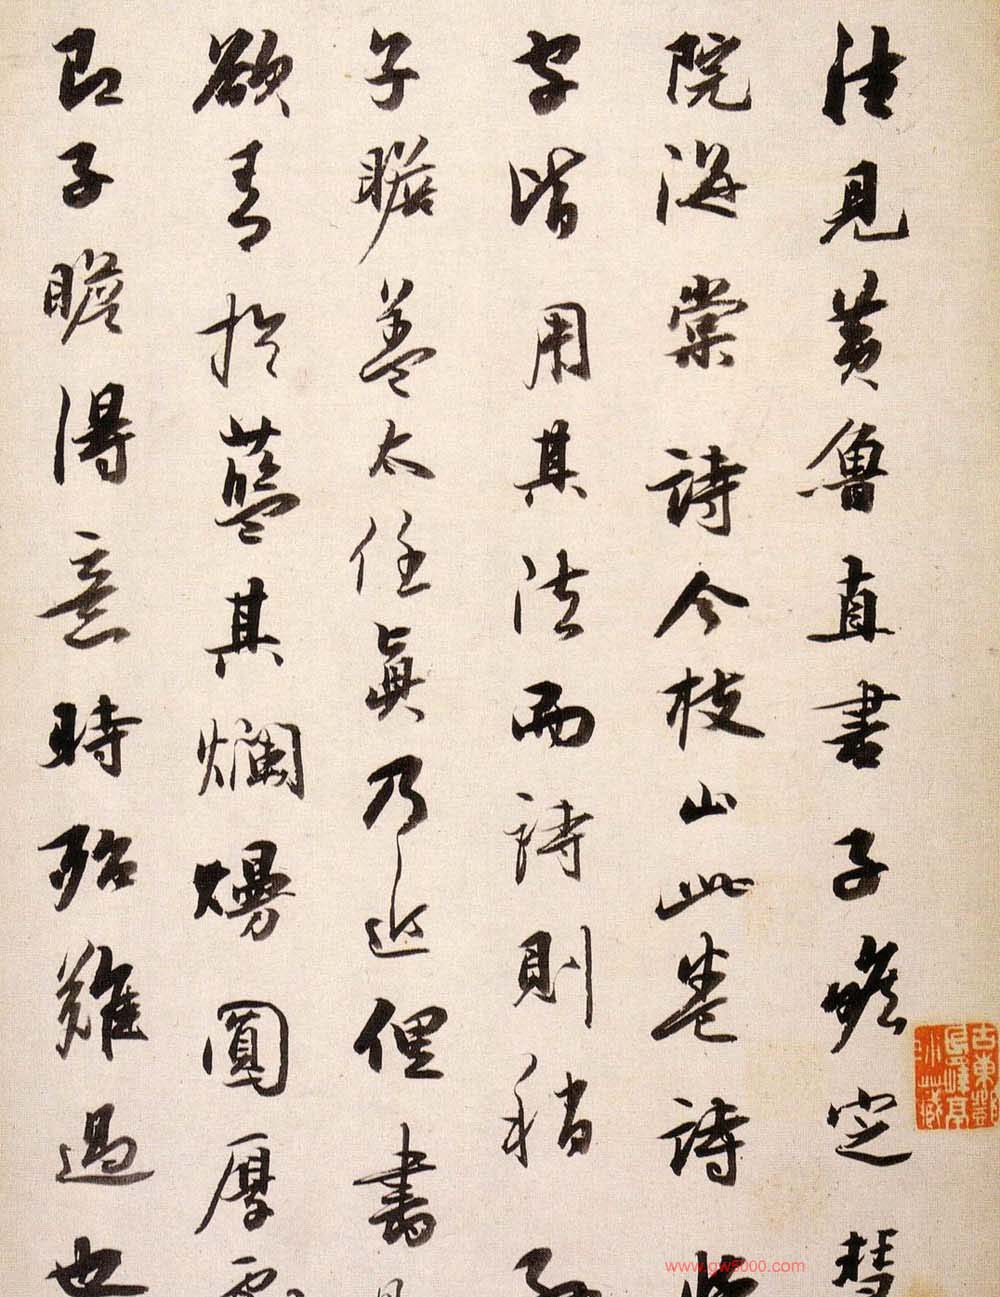 往見黄魯直書子瞻定慧
院海棠詩今枝山此卷詩
字皆用其法而詩則稍
子瞻盖太任真乃近俚書
欲青於藍其爛熳圓厚
即子瞻得意時殆難過也
www.gw5000.com